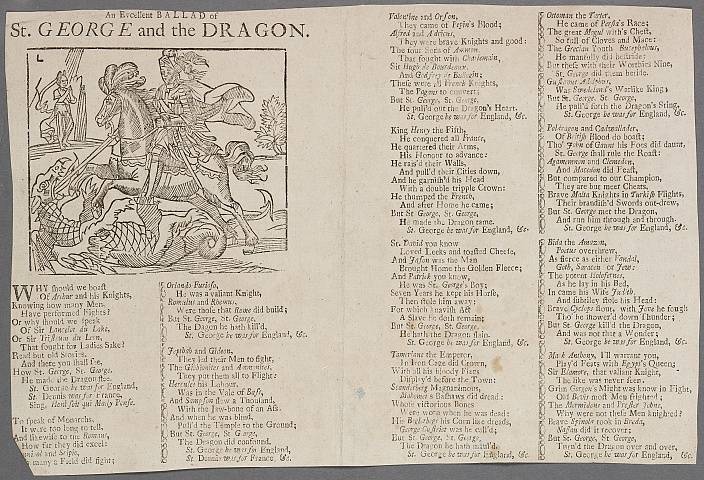 An Excellent BALLAD of
St. GEORGE and the DRAGON.
WHY should we boast
Of Arthur and his Knights,
Knowing how many Men
Have performed Fights?
Or why should we speak
Of Sir Lancelot du Lake,
Or Sir Tristram du Leon,
That fought for Ladies Sake?
Read but old Stories,
And there you shall see,
How St. George, St. George,
He made the Dragon flee.
St. George he was for England,
St. Dennis was for France,
Sing, Honi soit qui Mal y Pense.
To speak of Monarchs,
It were too long to tell,
And likewise to the Romans,
How far they did excel:
and Scipio,
many a Field did fight;
Orlando Furioso,
He was a valiant Knight,
Romulus and Rhemus,
Were those that Rome did build;
But St. George, St. George,
The Dragon he hath kill'd.
St. George he was for England, &c.
Jephtah and Gideon,
They led their Men to fight,
The Gibbonites and Ammonites,
They put them all to Flight:
Hercules his Labour,
Was in the Vale of
And Sampson slew a Thousand,
With the Jaw-bone of an Ass:
And when he was blind,
Pull'd the Temple to the Ground;
But St. George, St. George,
The Dragon did confound.
St. George he was for England
St. Dennis was for France, &c.
Valentine and Orson,
They came of Pepin's Blood;
Alfred and
They were brave Knights and good:
The four Sons of
That fought with Charlemain,
Sir Hugh de Bourdeaux,
And Godfrey de
These were all French Knights,
The Pagans to convert;
But St. George, St. George,
He pull'd out the Dragon's Heart.
St. George he was for England, &c.
King Henry the Fifth,
He conquered all France,
He quartered their Arms,
His Honour to advance:
He rais'd their Walls,
And pull'd their Cities down,
And he garnish'd his Head
With a double tripple Crown:
He thumped the French,
And after Home he came;
But St. George, St. George,
He made the Dragon tame.
St. George he was for England, &c.
St. David you know
Loved Leeks and toasted Cheese,
And Jason was the Man
Brought Home the Golden Fleece;
And Patrick you know,
He was St. George's Boy;
Seven Years he kept his Horse,
Then stole him away:
For which knavish Act
A Slave he doth remain;
But St. George, St. George,
He hath the Dragon slain.
St. George he was for England, &c.
Tamerlane the Emperor,
In Iron Cage did Crown,
With all his bloody Flags
Display'd before the Town:
Scanderbeg Magnanimous,
Mahomet's Bashaws did dread:
Whose victorious Bones
Were worn when he was dead:
His Beglerbegs his Corn like dreads,
George Castriot was he call'd;
But St. George, St. George,
The Dragon he hath maul'd.
St. George he was for England, &c.
Ottoman the Tarter,
He came of Persia's Race;
The great Mogul with's Chest,
So full of Cloves and Mace:
The Grecian Youth Bucephalus,
He manfully did bestride:
But these with their Worthies Nine,
St. George did them deride.
Was Swedeland's Warlike King;
But St. George, St. George,
He pull'd forth the Dragon's Sting.
St. George he was for England, &c.
Pendragon and Cadwallader,
Of British Blood do boast;
Tho' John of Gaunt his Foes did daunt,
St. George shall rule the Roast:
Agamemnon and
And Macedon did Feast,
But compared to our Champion,
They are but meer Cheats.
Brave Malta Knights in Turkish Fights,
Their brandish'd Swords out-drew,
But St. George met the Dragon,
And run him through and through.
St. George he was for England, &c.
Bida the Amazon,
overthrew,
As fierce as either Vandal,
Goth, Saracen or Jew:
The potent Holofernes,
As he lay in his Bed,
In came his Wife Judith,
And subtiley stole his Head:
Brave Cyclops stout, with Jove he fough
Tho' he shower'd down Thunder;
But St. George kill'd the Dragon,
And was not that a Wonder;
St. George he was for England, &c.
Mark Anthony, I'll warrant you,
Play'd Feats with Egypt's Queen;
Sir Eglamore, that valiant Knight,
The like was never seen.
Grim Gorgon's Might was know in Fight,
Old Bevis most Men frighted;
The Mirmidons and Prester Johns,
Why were not these Men knighted?
Brave Spinola took in Breda,
Nassau did it recover;
But St. George, St. George,
Turn'd the Dragon over and over,
St. George he was for England, &c.